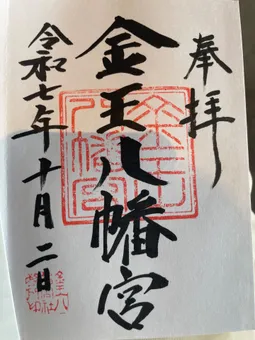 奉拝
金王八幡宮
令和七年十月二日